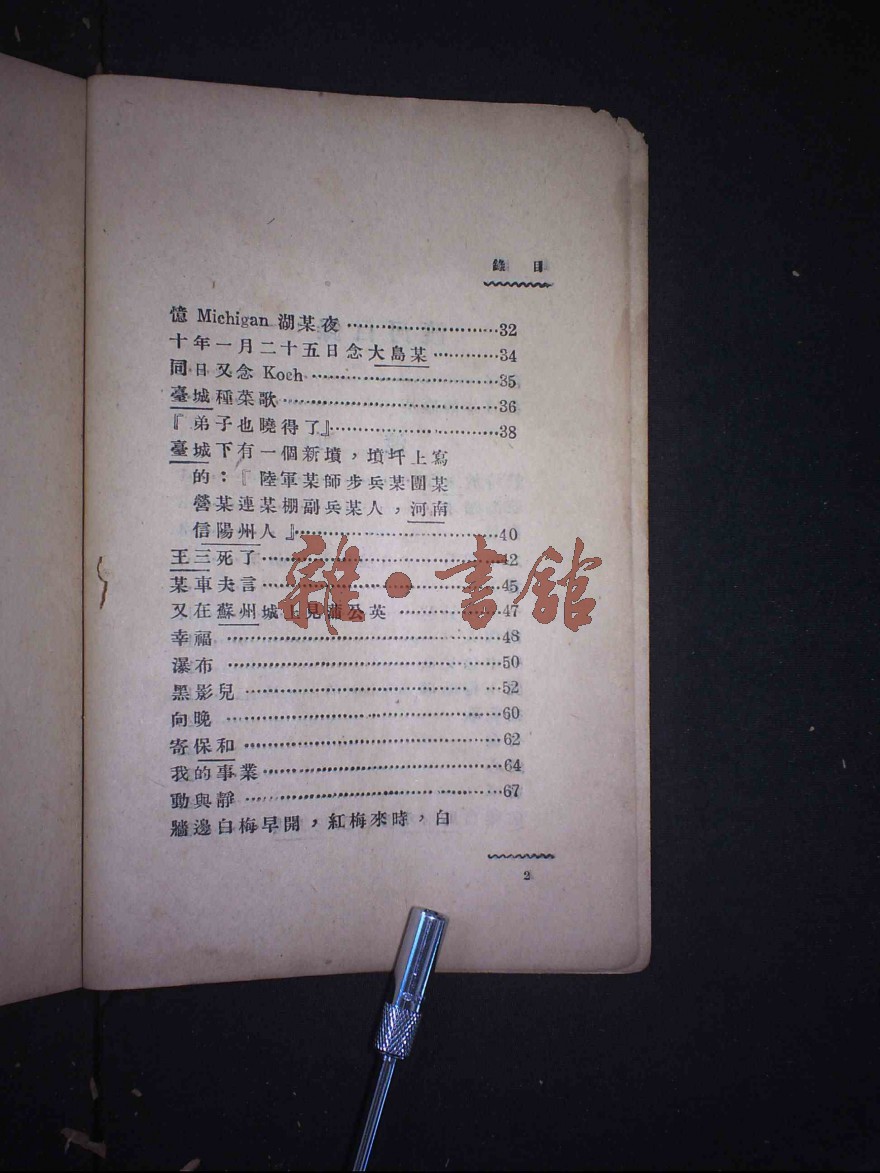 錄 目
憶 Michigan 湖某夜……………………32
十年一月二十五日念大島某…………34
同日又念 Koch……………………35
臺城種菜歌……………………36
『弟子也曉得了』……………………38
臺城下有一個新墳，墳圷上寫
的：『陸軍某師步兵某團某
營某連某棚副兵某人，河南
信陽州人』……………………40
王三死了……………………42
某車夫言……………………45
又在蘇州城上見蒲公英……………47
幸福……………………48
瀑布……………………50
黑影兒……………………52
向晚……………………60
寄保和……………………62
我的事業……………………64
動與靜……………………67
牆邊白梅早開，紅梅來時，白
2
雜·書館